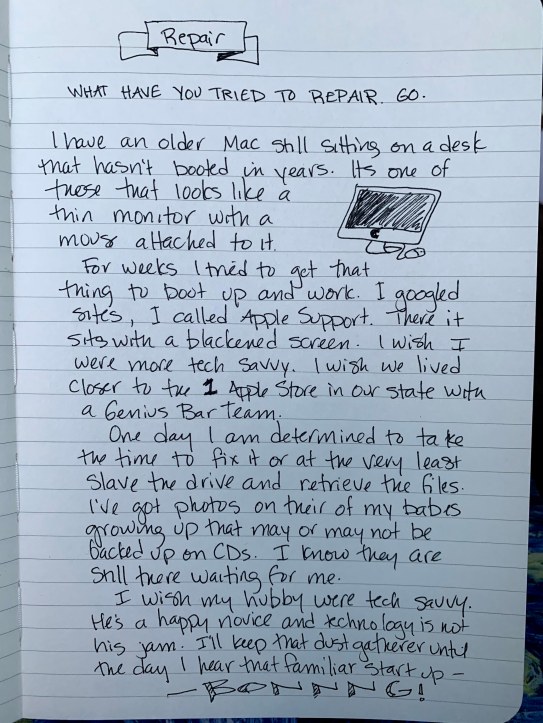 Repair
WHAT HAVE YOU TRIED TO REPAIR. GO.
I have an older Mac still sitting on a desk
that hasn't booted in years. Its one of
those that looks like a
thin monitor with a
mouse attached to it.
For weeks I tried to get that
thing to boot up and work. I googled
sites, I called Apple Support. There it
sits with a blackened screen. I wish I
were more tech savvy. I wish we lived
closer to the 1 Apple Store in our state with
a Genius Bar Team.
One day I am determined to take
the time to fix it or at the very least
slave the drive and retrieve the files.
I've got photos on their of my babes
growing up that may or may not be
backed up on CDs. I know they are
still there waiting for me.
I wish my hubby were tech savvy.
He's a happy novice and technology is not
his jam. I'll keep that dust gatherer until
the day I hear that familiar start up –
– BONNNG!